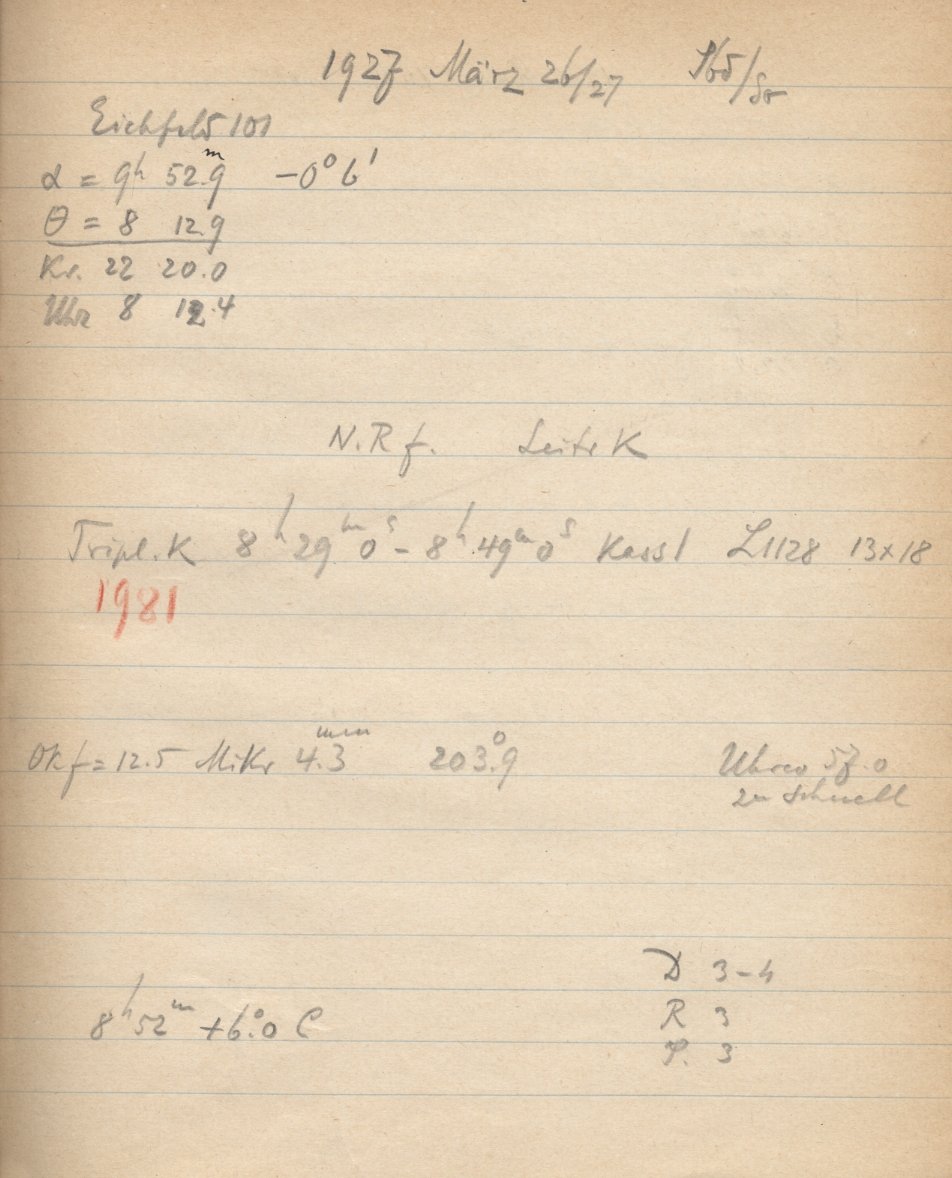 1927 März 26/27
Eichfeld 101
α = 9h 52.9m -0° 6'
θ = 8 12.9
Kr. 22 20.0
Uhr 8 12.4
N.R f. Leitr K
Tripl. K 8h 29m 0s - 8h 49m 0s Kass 1 L1128 13x18
1981
Ok f = 12.5 Mikr 4.3mm 203.°9 Uhren 57.0
zu schnell
D 3-4
8h 52m +6.°0 C R 3
P. 3